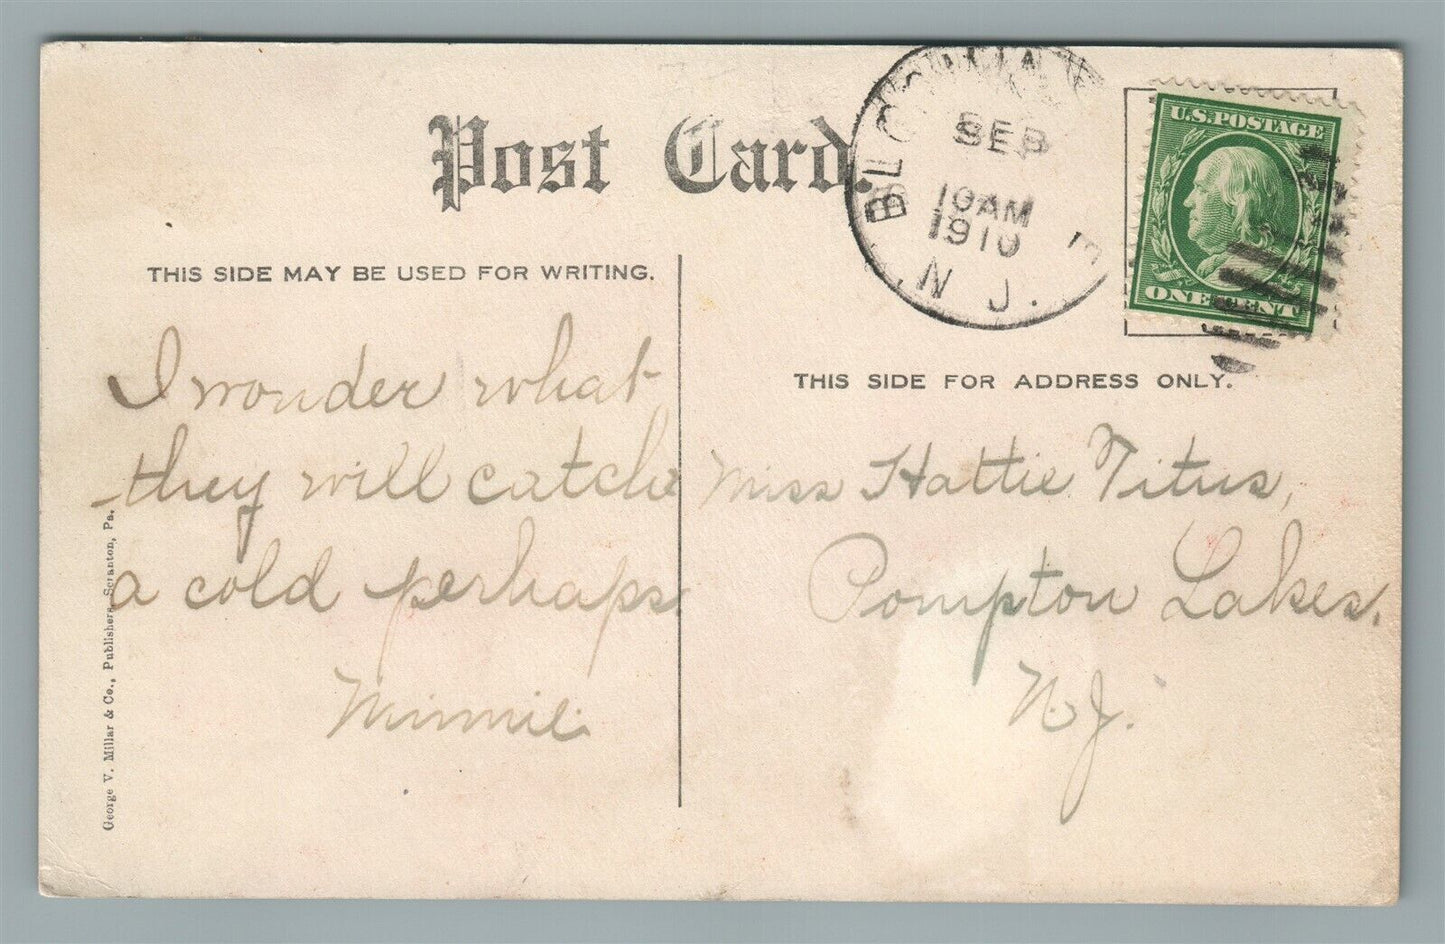 Post Card.
THIS SIDE MAY BE USED FOR WRITING.
I wonder what
they will catch
a cold perhaps
Minnie
George V. Millar & Co., Publishers, Scranton, Pa.
SEP
10 AM
1910
N. J.
U.S. POSTAGE
ONE CENT
THIS SIDE FOR ADDRESS ONLY.
Miss Hattie Titus,
Pompton Lakes.
N. J.